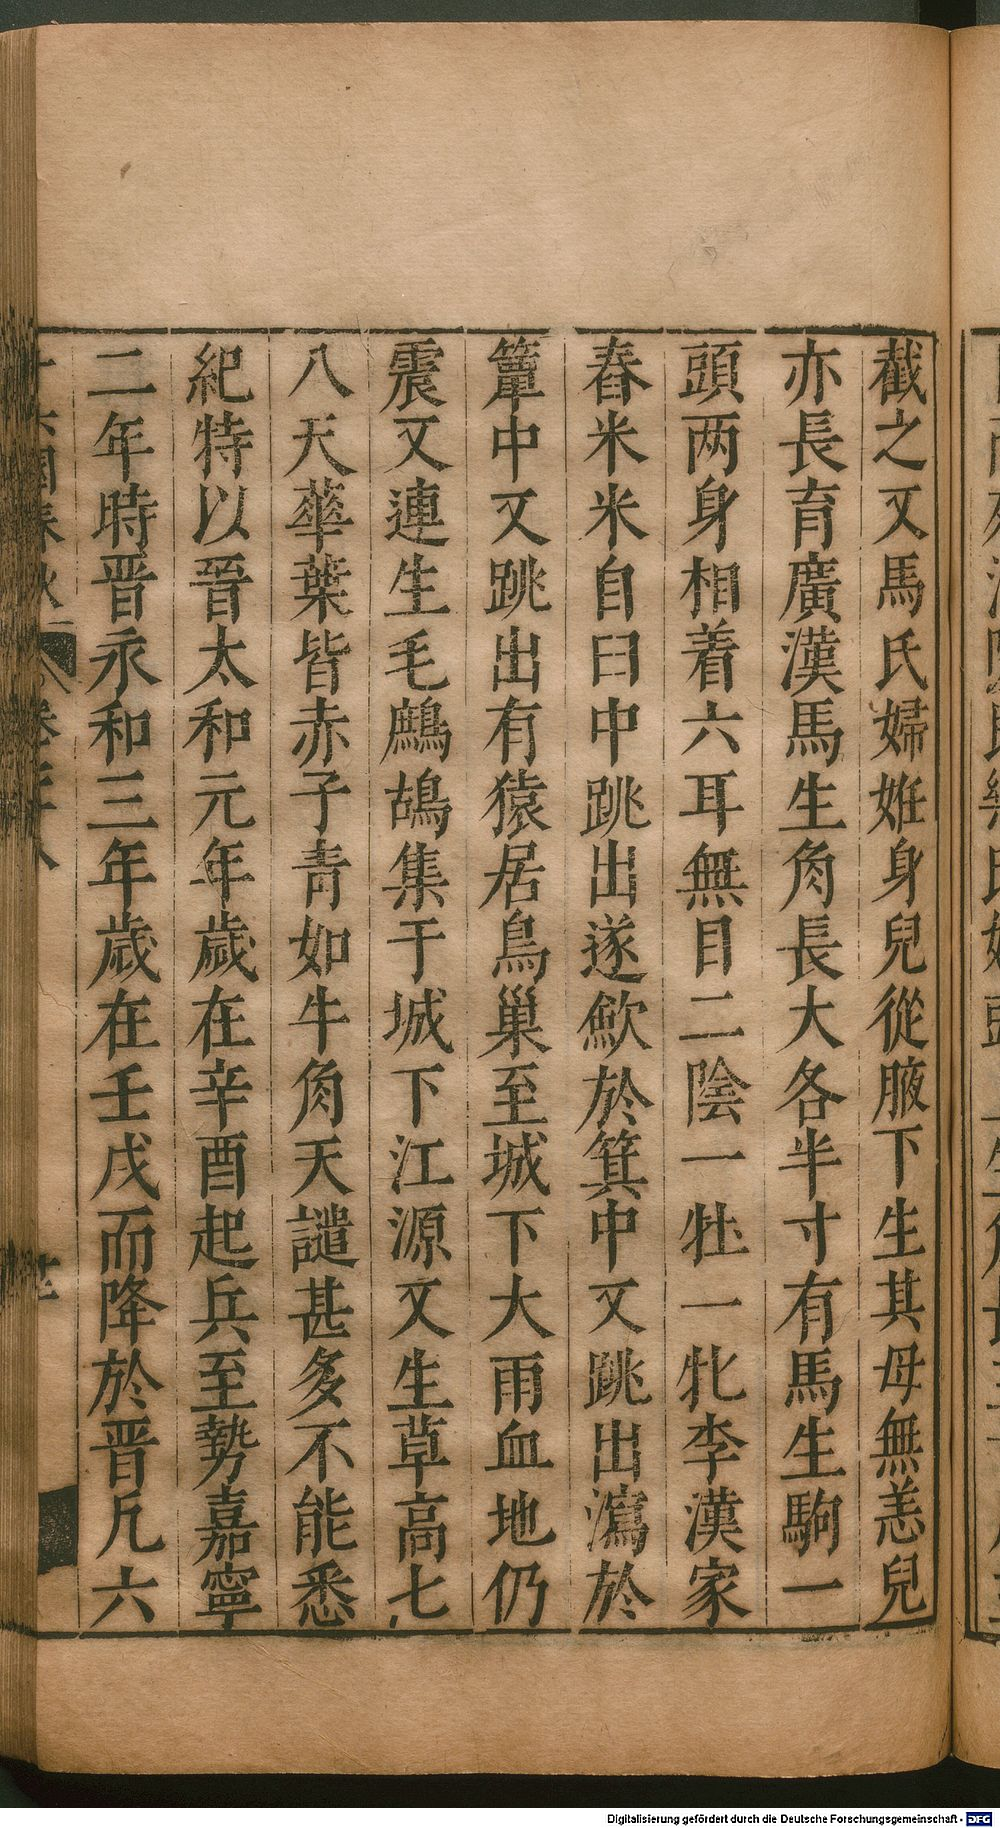 截之又馬氏婦姙身兒從腋下生其母無恙兒
亦長育廣漢馬生角長大各半寸有馬生駒一
頭两身相着六耳無目二陰一牡一牝李漢家
舂米米自臼中跳出遂歛於箕中又跳出瀉於
簟中又跳出有猿居鳥巢至城下大雨血地仍
震又連生毛鷓鴣集于城下江源又生草高七
八天華葉皆赤子青如牛角天譴甚多不能悉
紀特以晉太和元年歲在辛酉起兵至勢嘉寧
二年時晋永和三年歲在壬戌而降於晋凡六
國春秋
Digitalisierung gefördert durch die Deutsche Forschungsgemeinschaft - DFG